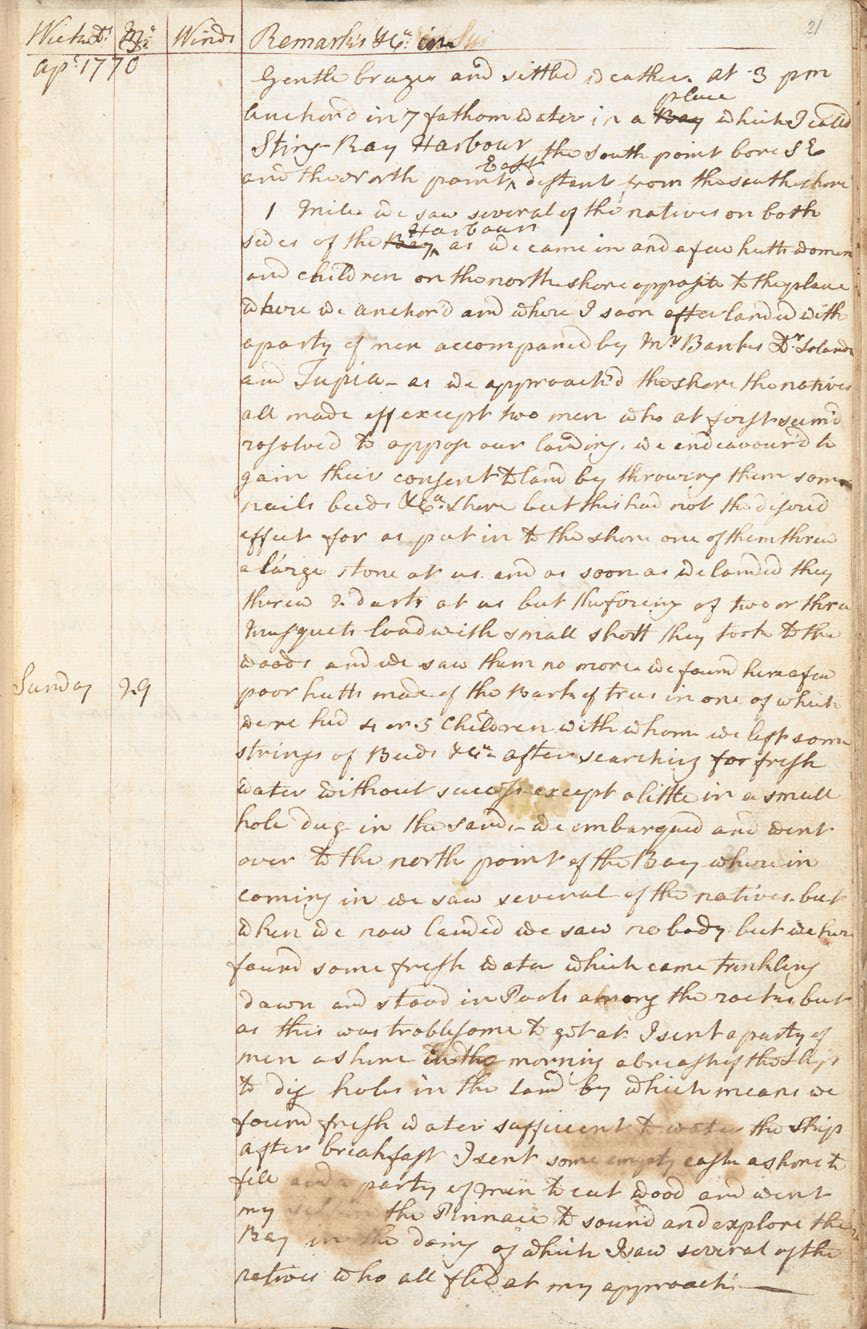 21
Week Ds Mo Winds Remarks &Ca. in
Apl. 1770
Gentle brezes and settled weather. at 3 pm
anchor'd in 7 fathom water in a Bay place which I call'd
Sting-Ray Harbour the south point bore SE
and the North point East distant from the south shore
1 Mile we saw several of the natives on both
sides of the Bay Harbour as we came in and a few hutts women
and children on the north shore opposite to the place
where we anchor'd and where I soon after landed with
a party of men accompaned by Mr Banks Dr Soland
and Tupia - as we approach'd the shore the natives
all made off except two men who at first seem'd
resolved to oppose our landing. we endeavour'd to
gain their consent to land by throwing them some
nails beeds &Ca. a shore but this had not the desired
effect for as put in to the shore one of them threw
a large stone at us and as soon as we landed they
threw 2 darts at us but the fireing of two or three
Musquets load with small shott they took to the
woods and we saw them no more we found here a few
Sunday 29 poor hutts made of the Bark of trees in one of which
were hid 4 or 5 Children with whome we left some
strings of Beeds &Ca. after searching for fresh
water without success except a little in a small
hole dug in the sand - we embarqued and went
over to the north point of the Bay where in
coming in we saw several of the natives but
when we now landed we saw no body but we here
found some fresh water which came trinkling
down and stood in Pools among the rocks but
as this was troblesome to get at I sent a party of
men a shore in the morning abreast of the Ship
to dig holes in the sand by which means we
found fresh water sufficient to water the Ship
after breakfast I sent some empty casks a shore to
fill and a party of men to cut wood and went
my self in the Pinnace to sound and explore the
Bay in the doing of which I saw several of the
natives who all fled at my approach. —